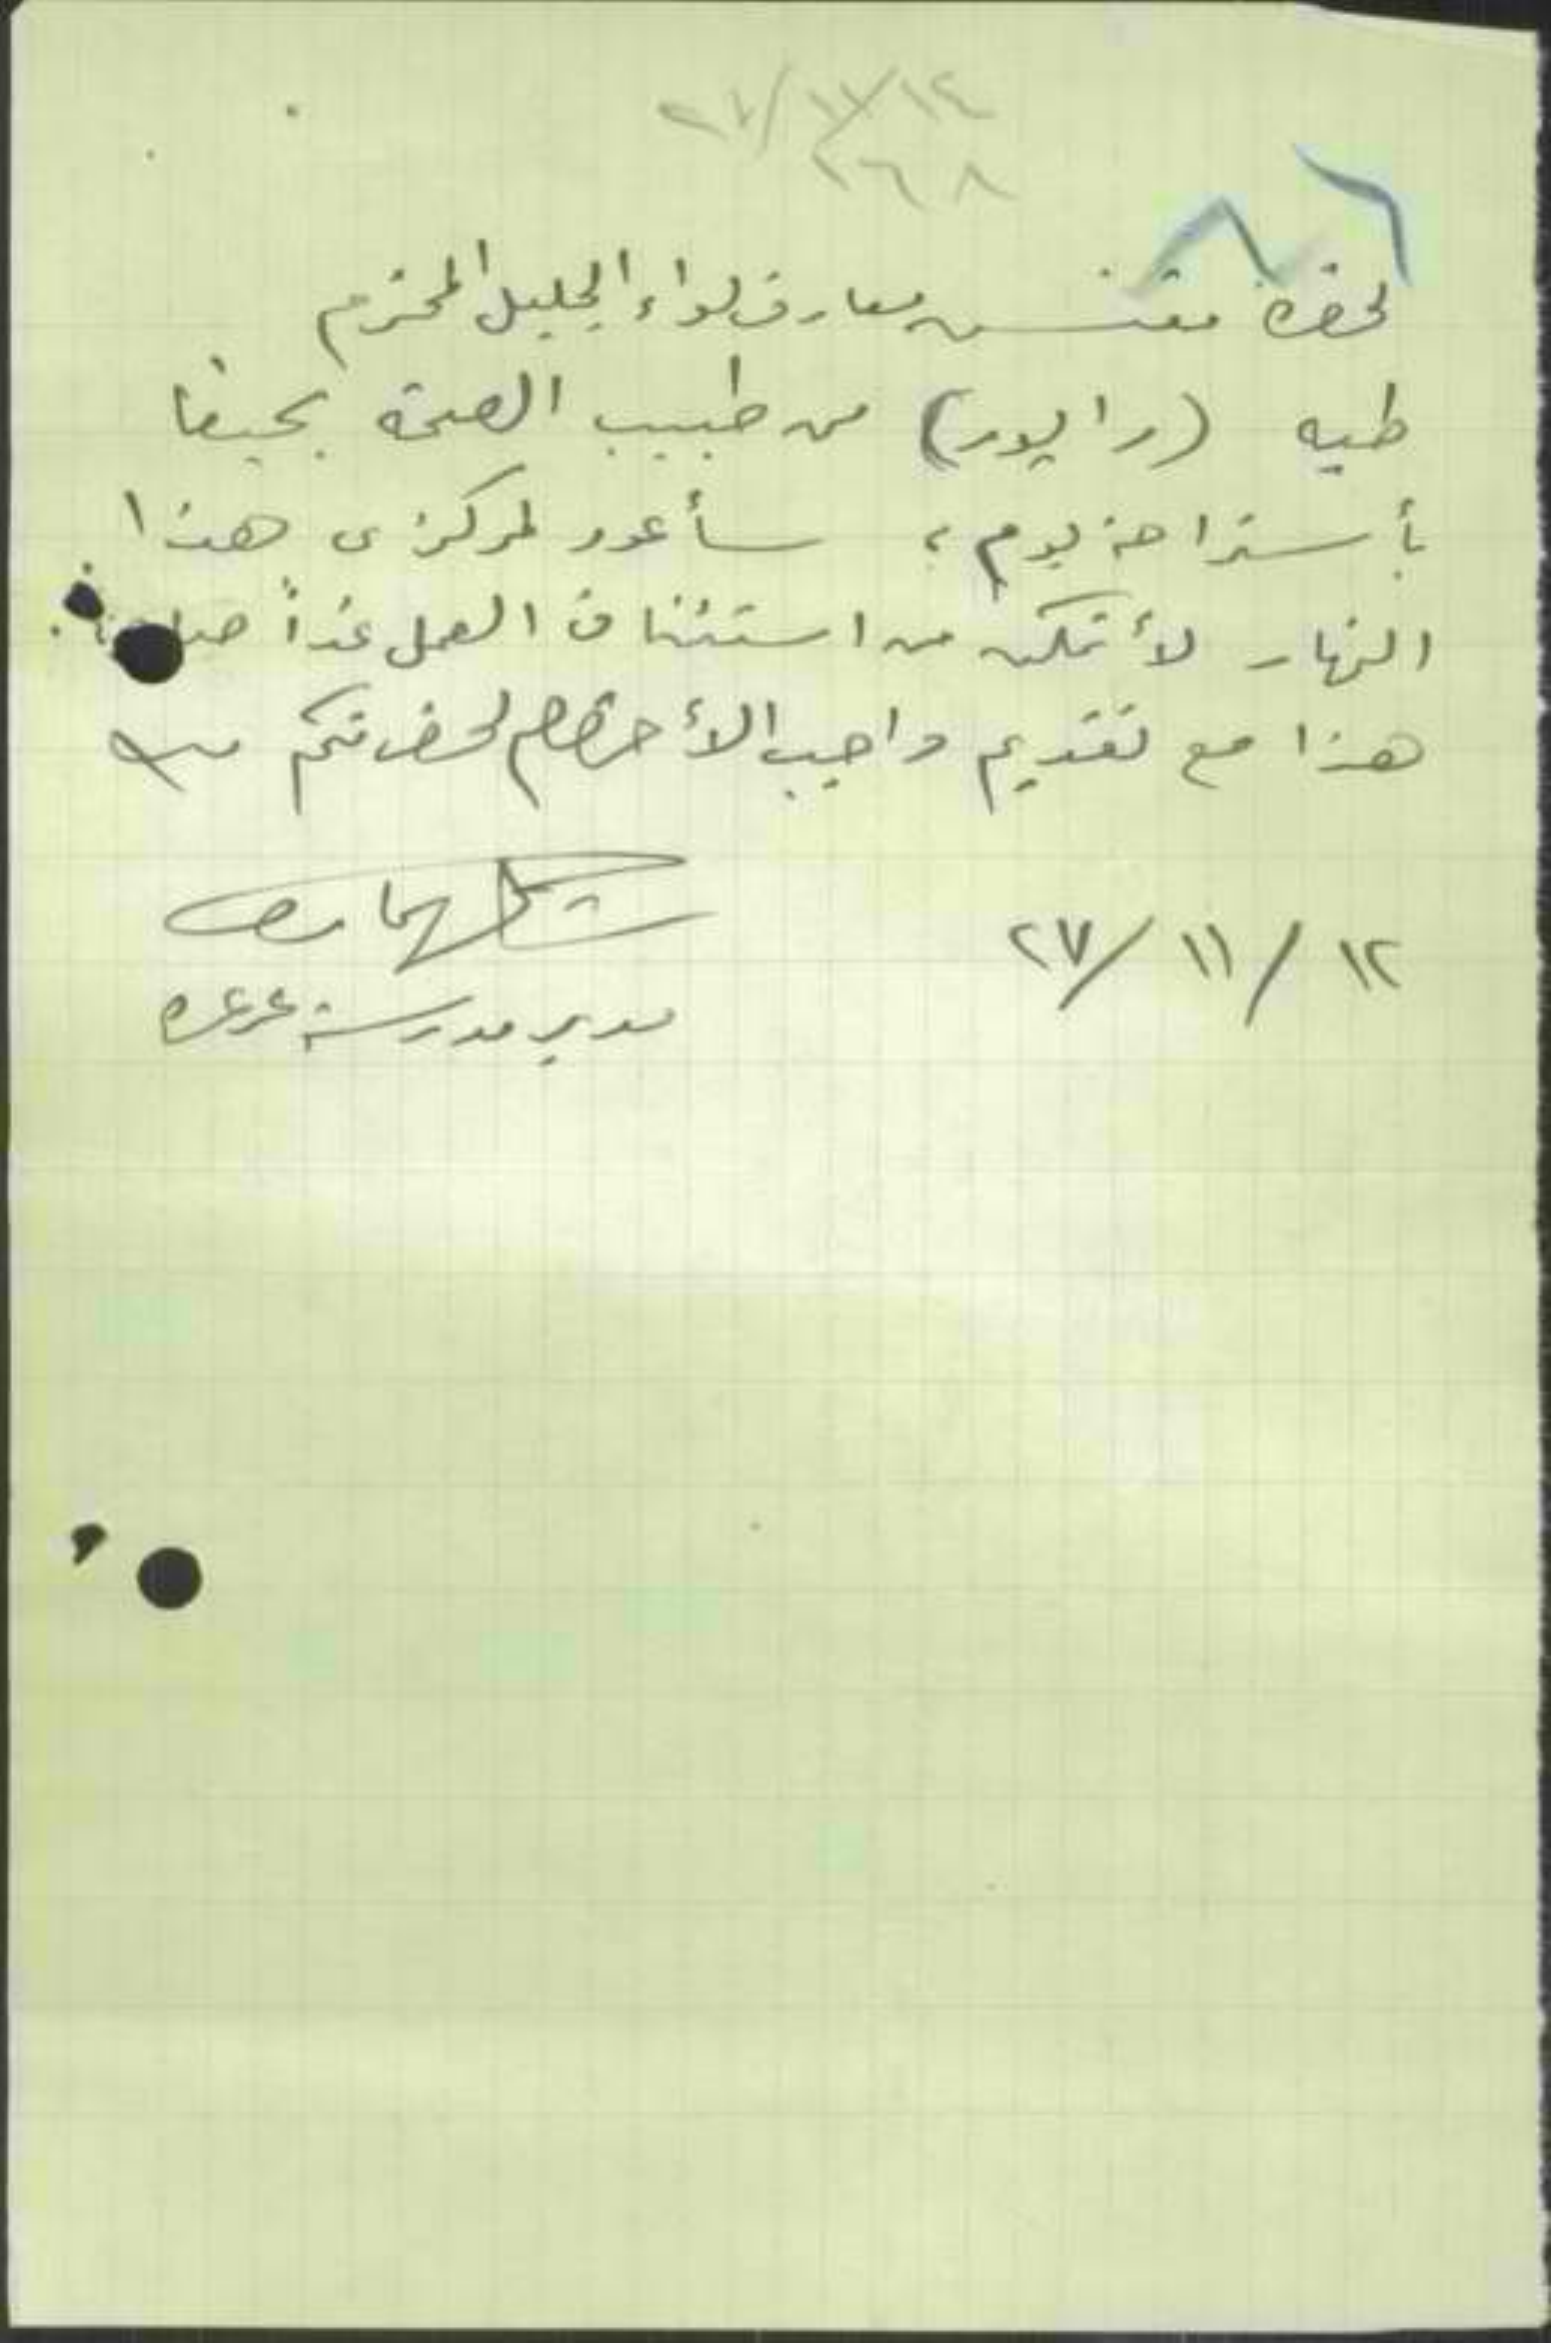 ٢٧/١١/١٤
٢٦٨
٨٦
لحضرة مفتش معارف لواء الجليل المحترم
طيه (رابور) من طبيب الصحة بحيفا
بأستراحة يوم، سأعود لمركزى هذا
النهار لأتمكن من استئناف العمل غداً صباحاً.
هذا مع تقديم واجب الأحترام لحضرتكم
١٢/ ١١/ ٢٧
مدير مدرسة عرعره